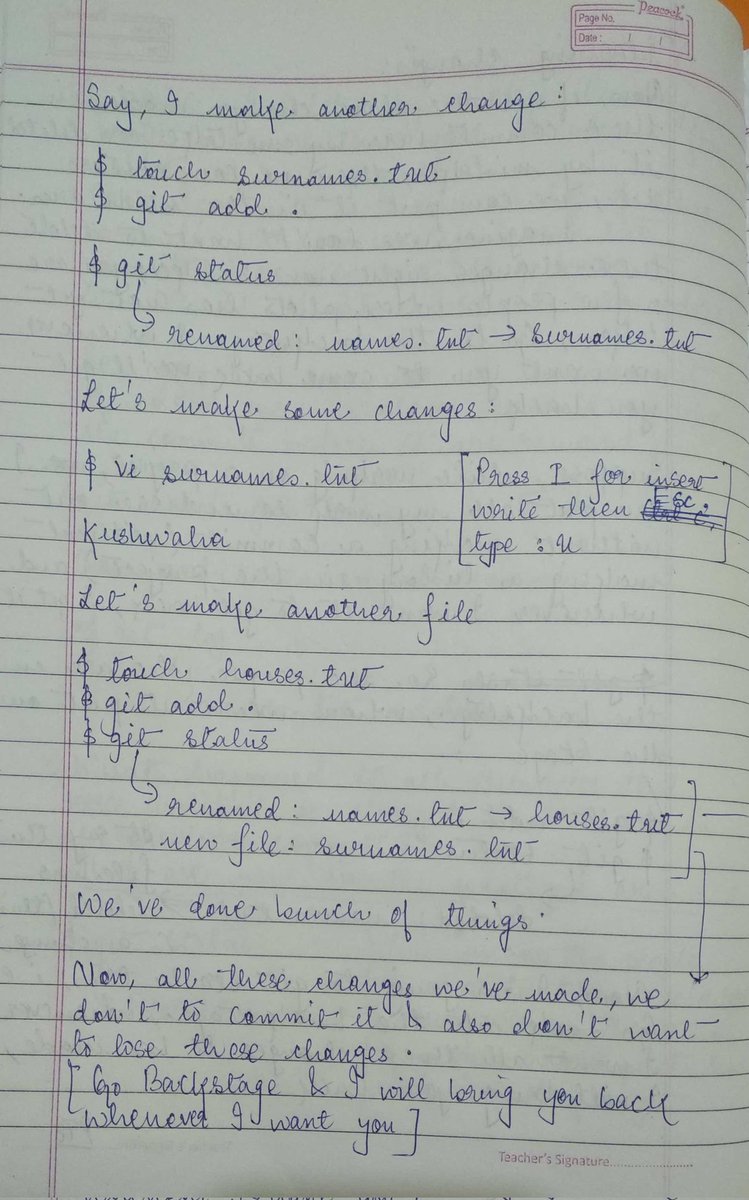 Peacock
Page No.
Date: / /
Say, I make another change:
$ touch surnames.txt
$ git add .
$ git status
↳ renamed: names.txt → surnames.txt
Let's make some changes:
$ vi surnames.txt
[Press I for insert
write then Esc
type :x]
Kushwaha
Let's make another file
$ touch houses.txt
$ git add .
$ git status
↳ renamed: names.txt → houses.txt
new file: surnames.txt
We've done bunch of things.
Now, all these changes we've made, we
don't to commit it & also don't want
to lose these changes.
[Go Backstage & I will bring you back
whenever I want you]
Teacher's Signature....................